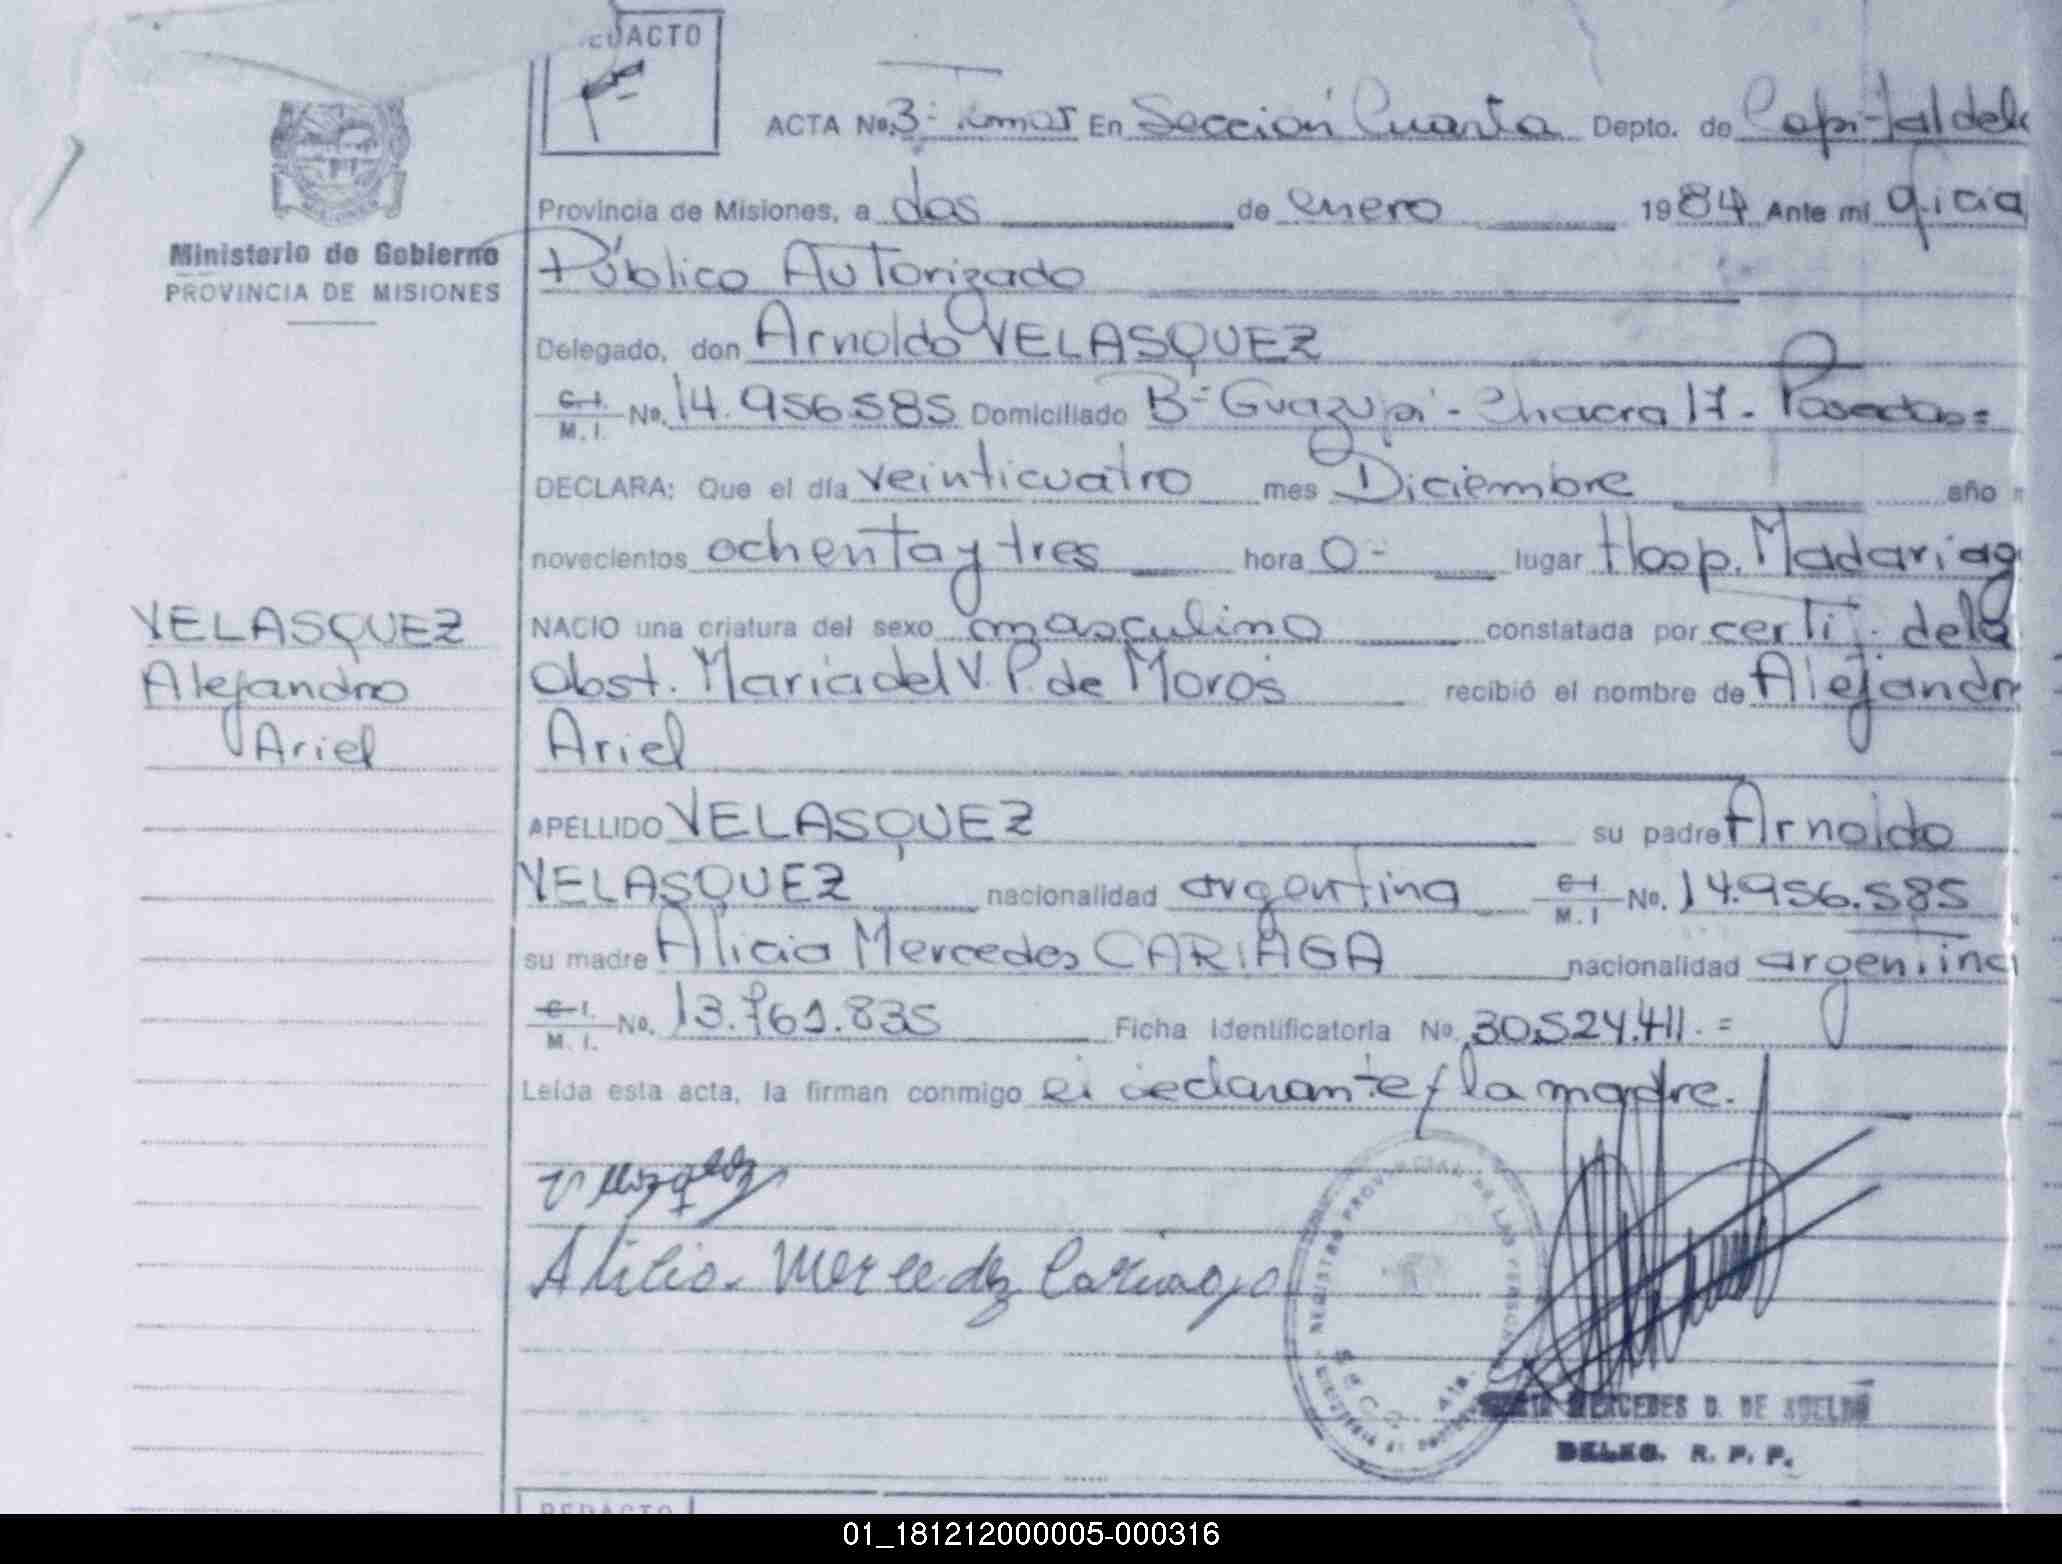 REDACTO
ACTA No. 3- Tomo I En Sección Cuarta Depto. de Capital de la
Provincia de Misiones, a dos de enero 1984 Ante mí Oficial
Público Autorizado
Ministerio de Gobierno
PROVINCIA DE MISIONES
Delegado, don Arnoldo VELASQUEZ
C.I. M.I. No. 14.956.585 Domiciliado Bº Guazupi - Chacra 17 - Posadas=
DECLARA: Que el día veinticuatro mes Diciembre año
novecientos ochenta y tres hora 0- lugar Hosp. Madariag
VELASQUEZ
Alejandro
Ariel
NACIO una criatura del sexo masculino constatada por certif. de la
Obst. Maria del V. P. de Moros recibió el nombre de Alejandro
Ariel
APELLIDO VELASQUEZ su padre Arnoldo
VELASQUEZ nacionalidad argentina C.I. M.I No. 14.956.585
su madre Alicia Mercedes CARIAGA nacionalidad argentina
C.I. M.I. No. 13.761.835 Ficha Identificatoria No. 30.524.411.=
Leída esta acta, la firman conmigo el declarante y la madre.
Velazquez
Alicia Mercedez Cariaga
REGISTRO PROVINCIAL DE LAS PERSONAS
SECC. 4ta.
MERCEDES D. DE
DELEG. R. P. P.
REDACTO
01_181212000005-000316